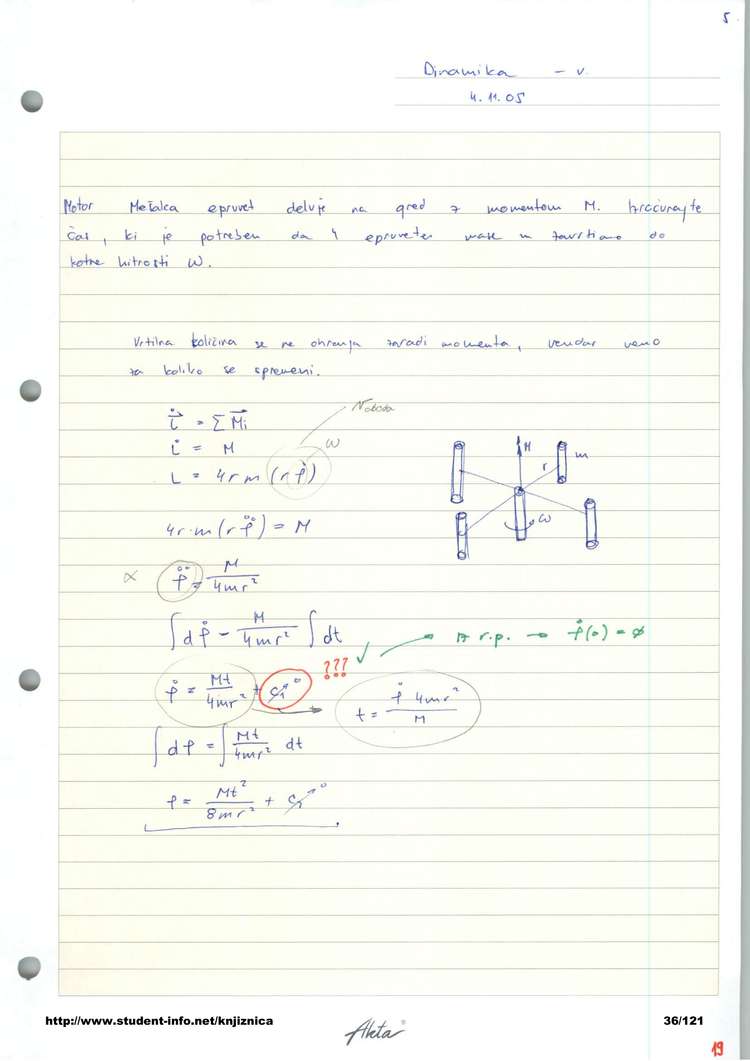 5
Dinamika - v.
4.11.05
Motor Mešalca epruvet deluje na gred z momentom M. Izračunajte
čas, ki je potreben da 4 epruvete mase m zavrtimo do
kotne hitrosti ω.
Vrtilna količina se ne ohranja zaradi momenta, vendar vemo
za koliko se spremeni.
L̇ = Σ Mi
L̇ = M
ω
L = 4rm (r φ̇)
M
r
m
ω
4r·m(r φ̈) = M
α φ̈ = M / 4mr²
∫ dφ̇ = M / 4mr² ∫ dt
✓ → iz r.p. → φ̇(0) = ∅
φ̇ = Mt / 4mr² + C₁ → 0 ???
t = φ̇ 4mr² / M
∫ dφ = ∫ Mt / 4mr² dt
φ = Mt² / 8mr² + C₁ → 0
http://www.student-info.net/knjiznica
Akta
36/121
19